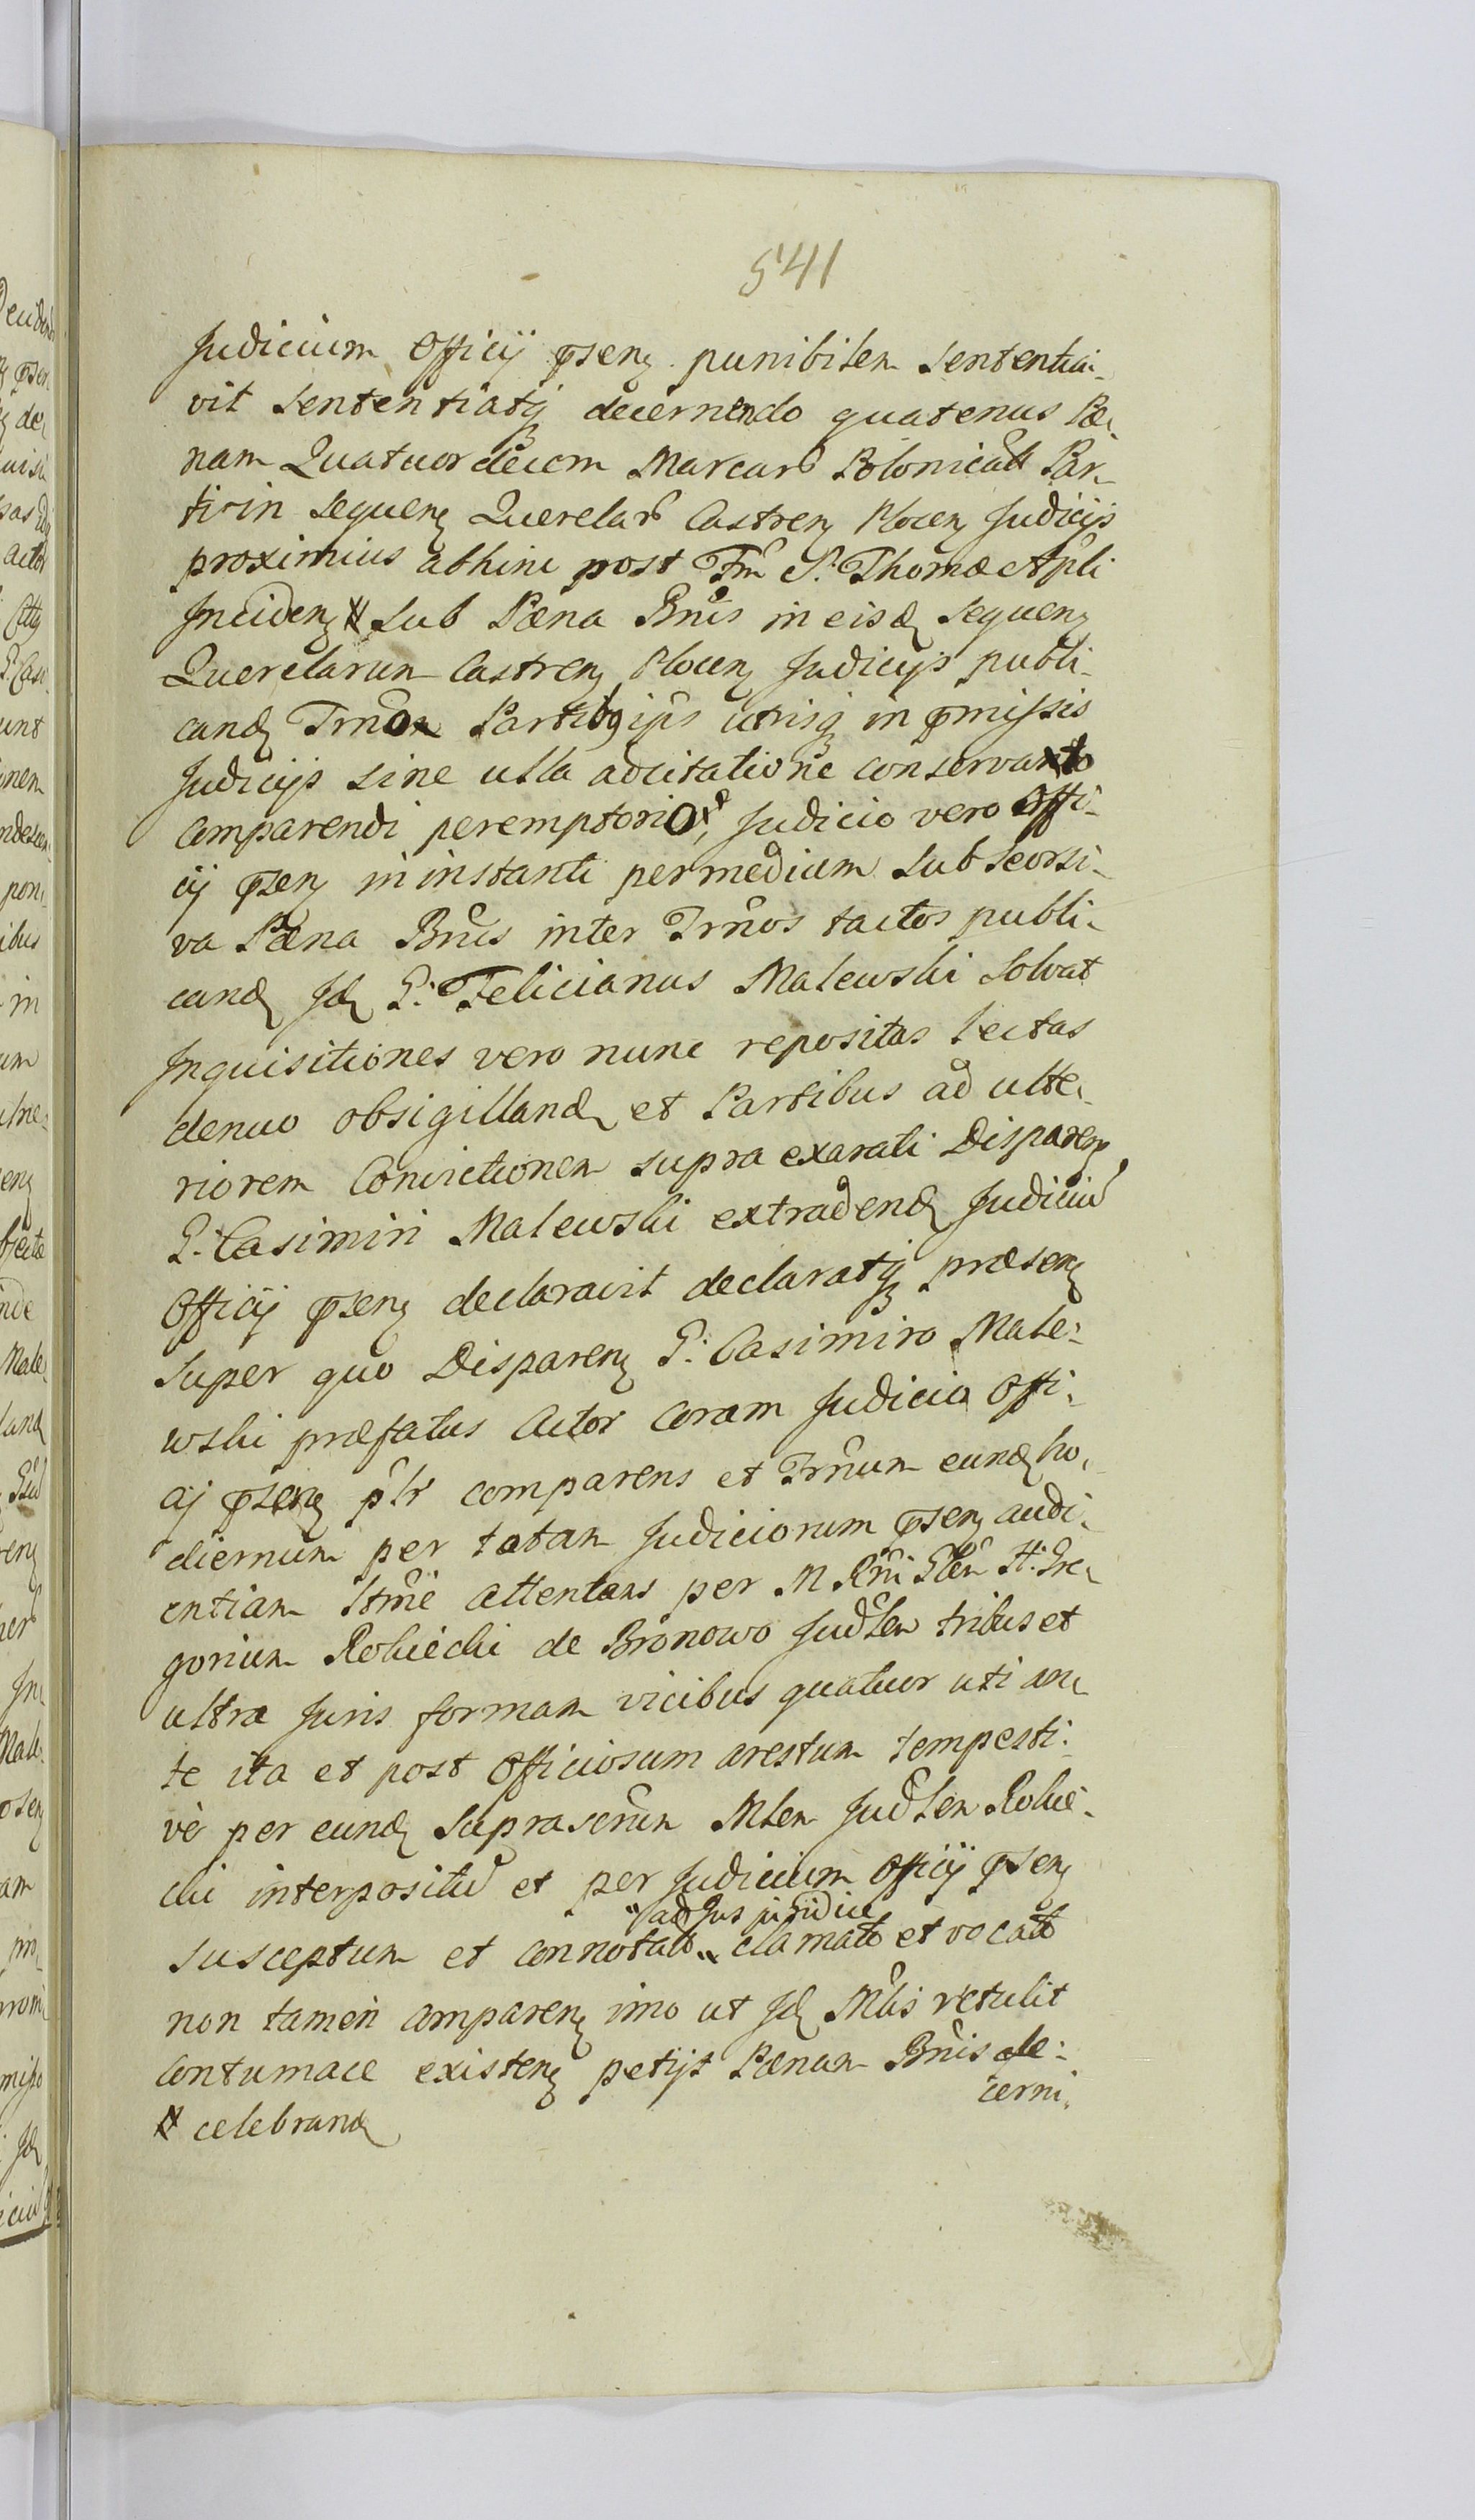 541
Judicium Officij pseng punibilem sententia-
vit sententiatq decernendo quatenus Pæ-
nam Quatuordecim Marcarū Polonicalū Par-
ti in sequeng Querelarū Castreng Ploceng Judicijs
proximius abhinc post Fm̃ S. Thomæ Apli
Incideng # sub Pæna Bn̄is in eisd sequeng
Querelarum Castreng Ploceng Judicijs publi-
cand Trn̄o Partibq ijs utrisq in pmissis
Judicijs sine ulla adcitatione conservato
comparendi peremptorio, Judicio vero Offi-
cij pseng in instanti per medium sub seorsi-
va Pæna Bn̄is inter Trn̄os tactos publi-
cand Id G. Felicianus Malewski solvat
Inquisitiones vero nunc repositas lectas
denuo obsigilland et Partibus ad ulte-
riorem Convictionem supra exarati Dispareng
G. Casimiri Malewski extradend Judiciū
Officij pseng declaravit declaratq præseng
Super quo Dispareng G. Casimiro Male-
wski præfatus Actor Coram Judicio Offi-
cij pseng plr comparens et Trn̄um eund ho-
diernum per totam Judiciorum pseng audi-
entiam ltm̄e attentans per M Rn̄i Gle H. Gre-
gorium Robiecki de Bronowo Judlem tribus et
ultra Juris formam vicibus quatuor uti an-
te ita et post Officiosum arestum tempesti-
vè per eund suprascrūm Mlem Judlem Robie-
cki interpositū et per Judicium Officij pseng
ad Jus juridice
susceptum et connotatū clamato et vocato
non tamen compareng imo ut Id Mlis retulit
contumace existeng petijt Pænam Bn̄is de-
cerni.
# celebrand